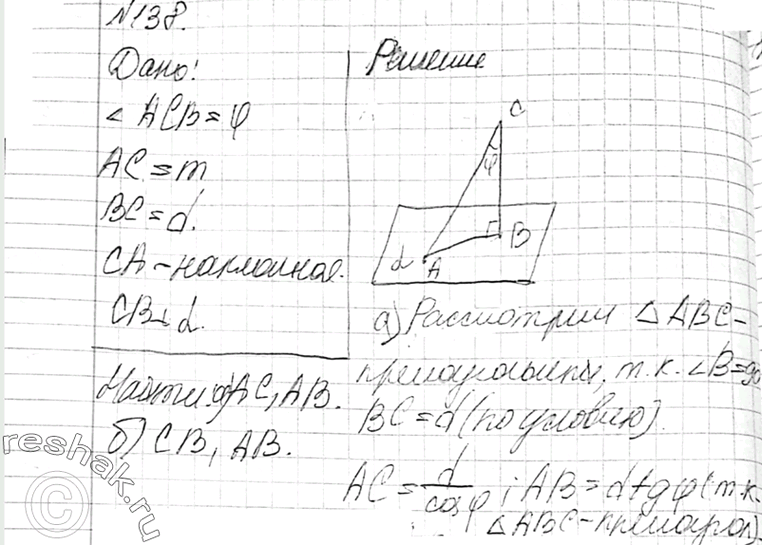 №138.
Дано:
∠ACB=φ
AC=m
BC=d.
CA-наклонная.
CB⊥α.
Найти: а) AC, AB.
б) CB, AB.
Решение
C
φ
B
α A
а) Рассмотрим △ABC-
прямоугольный, т.к. ∠B=90
BC=d (по условию).
AC=d/cosφ; AB=d tgφ (т.к.
△ABC-прямоугол).
reshak.ru
©